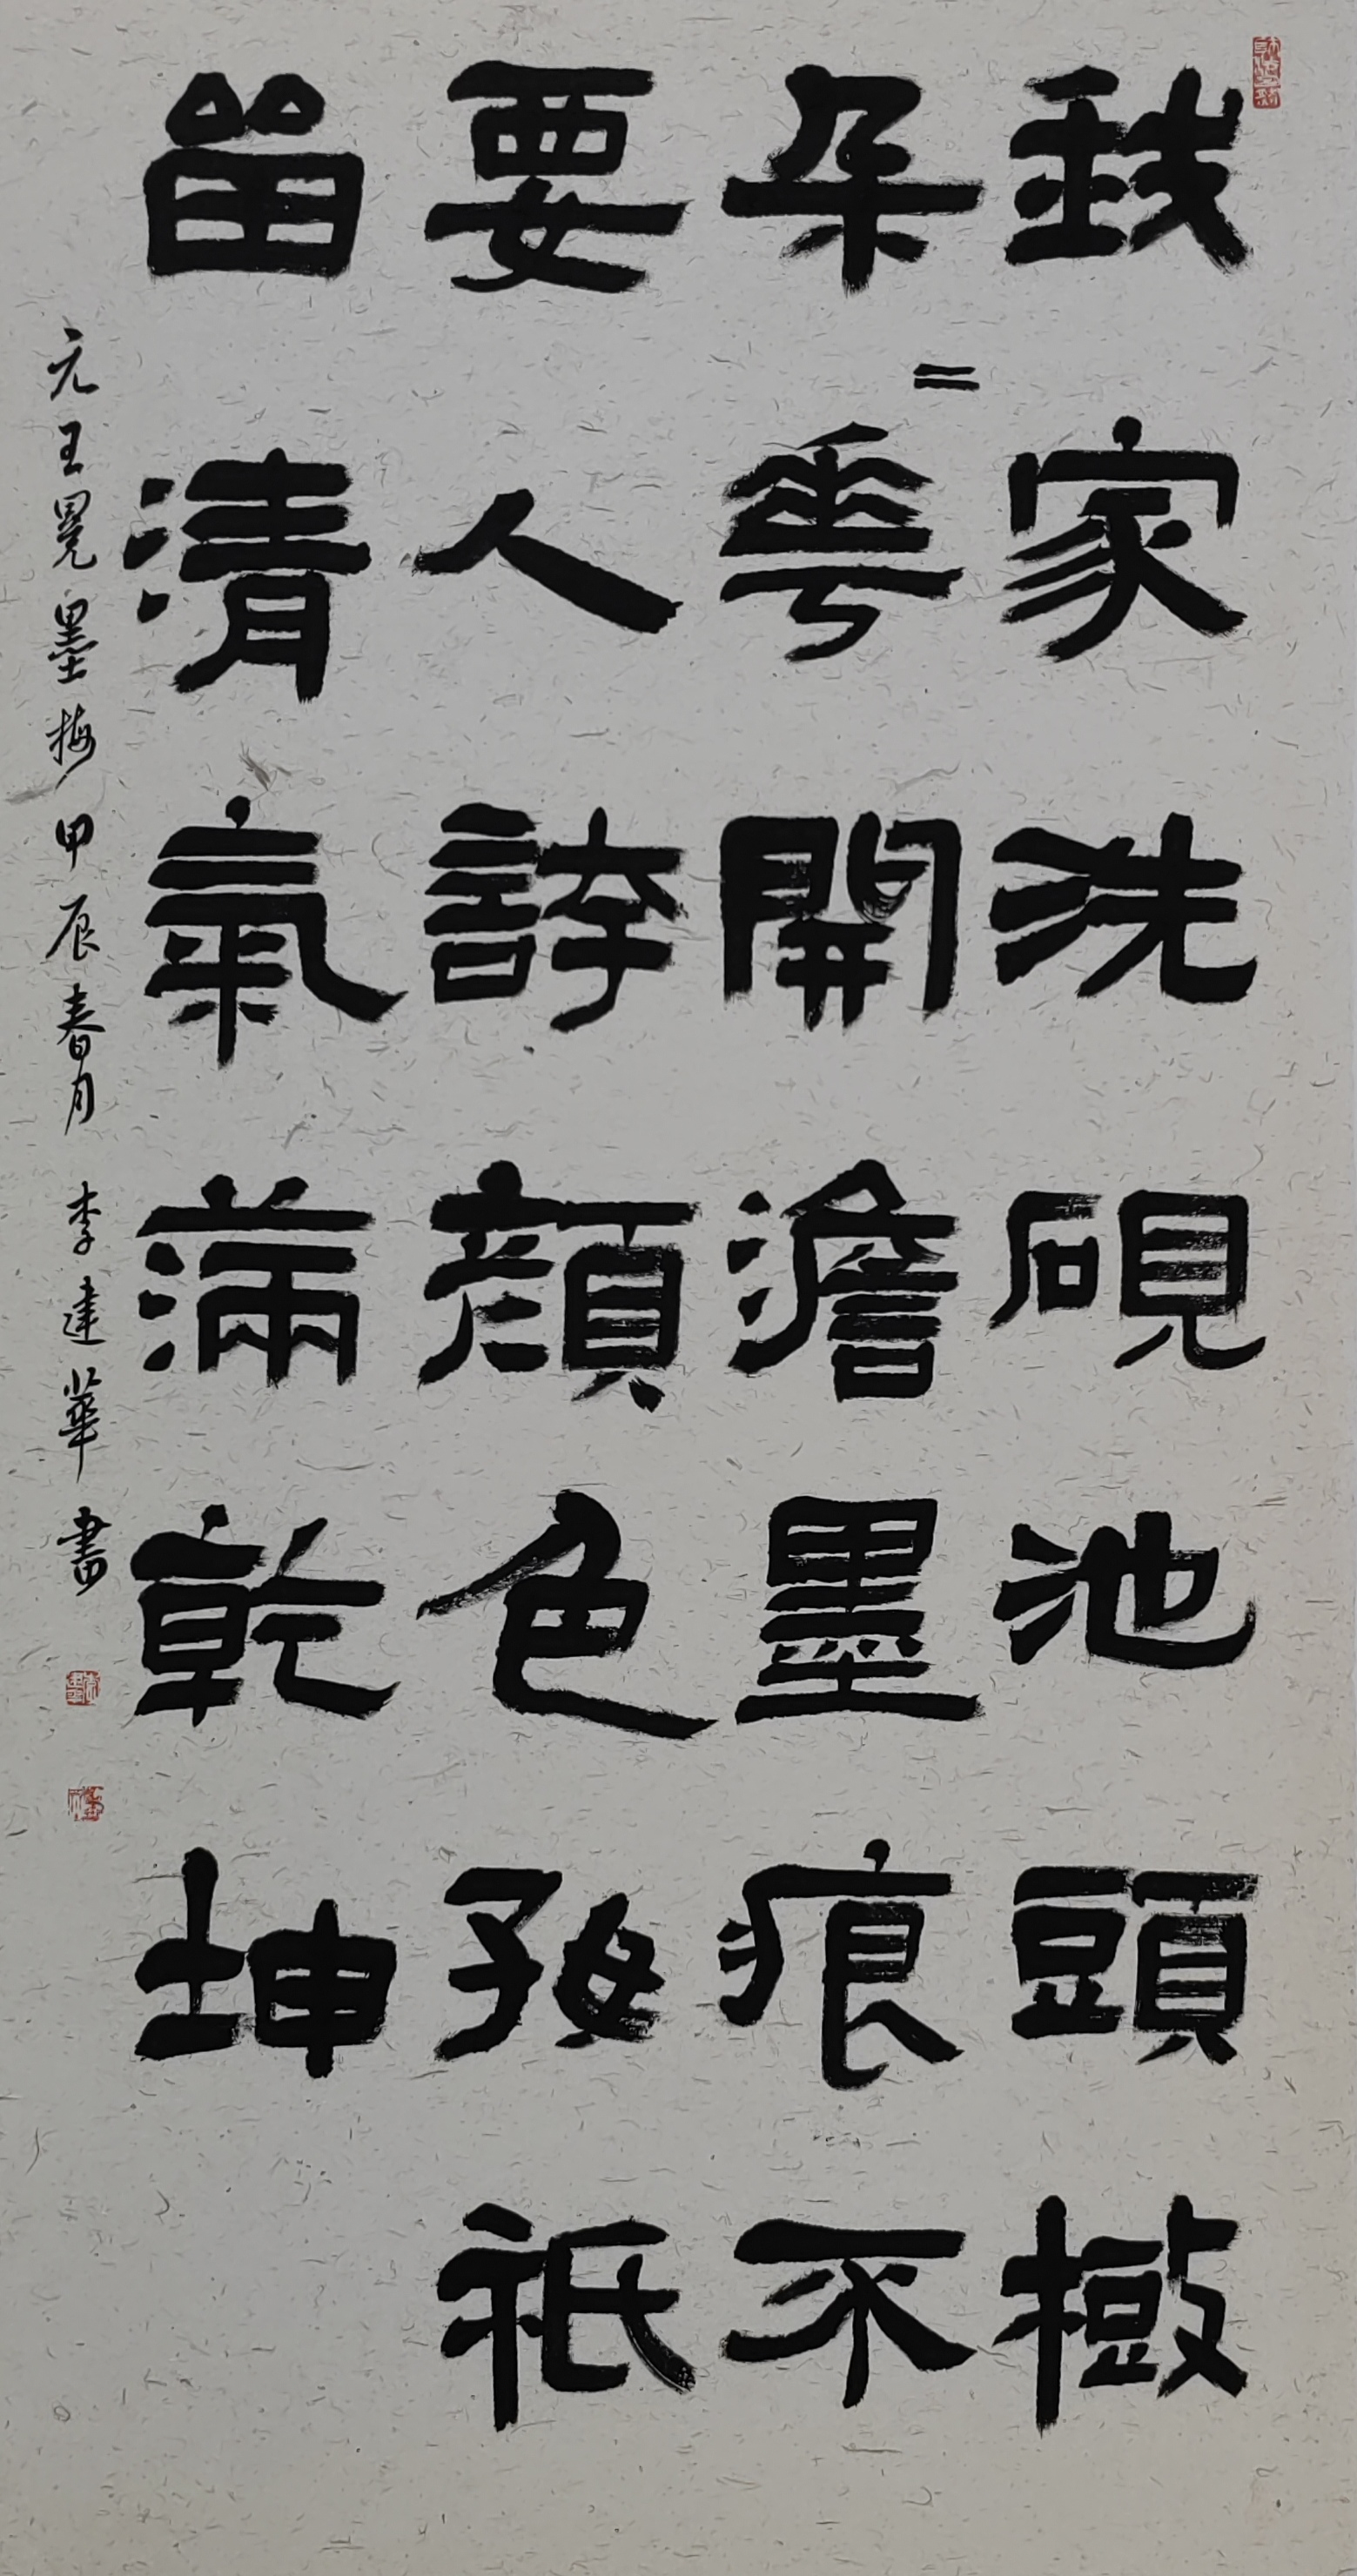 我家洗硯池頭樹
朵〻華開澹墨痕不
要人誇顏色好祇
畱清氣滿乾坤
元王冕墨梅甲辰春月李建華書